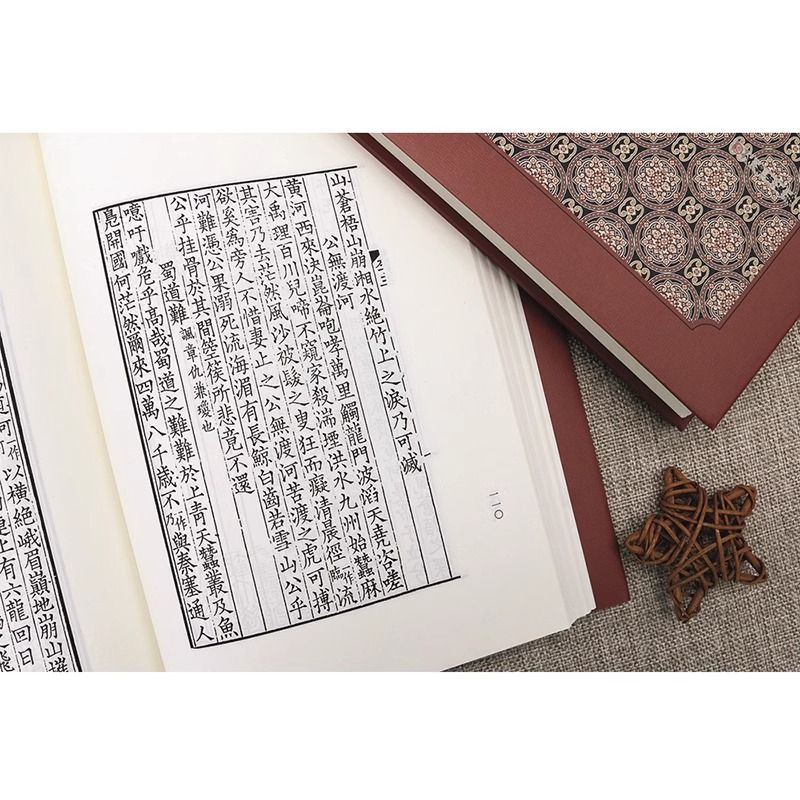 山蒼梧山崩湘水絕竹上之淚乃可滅
公無渡河
黃河西來決崑崙咆哮萬里觸龍門波滔天堯咨嗟
大禹理百川兒啼不窺家殺湍堙洪水九州始蠶麻
其害乃去茫然風沙被髮之叟狂而癡清晨徑一作臨流
欲奚為旁人不惜妻止之公無渡河苦渡之虎可搏
河難馮公果溺死流海湄有長鯨白齒若雪山公乎
公乎挂骨於其間箜篌所悲竟不還
蜀道難諷章仇兼瓊也
噫吁嚱危乎高哉蜀道之難難於上青天蠶叢及魚
鳧開國何茫然爾來四萬八千歲不一作乃與秦塞通人
以橫絕峨眉巔地崩山摧
上有六龍回日